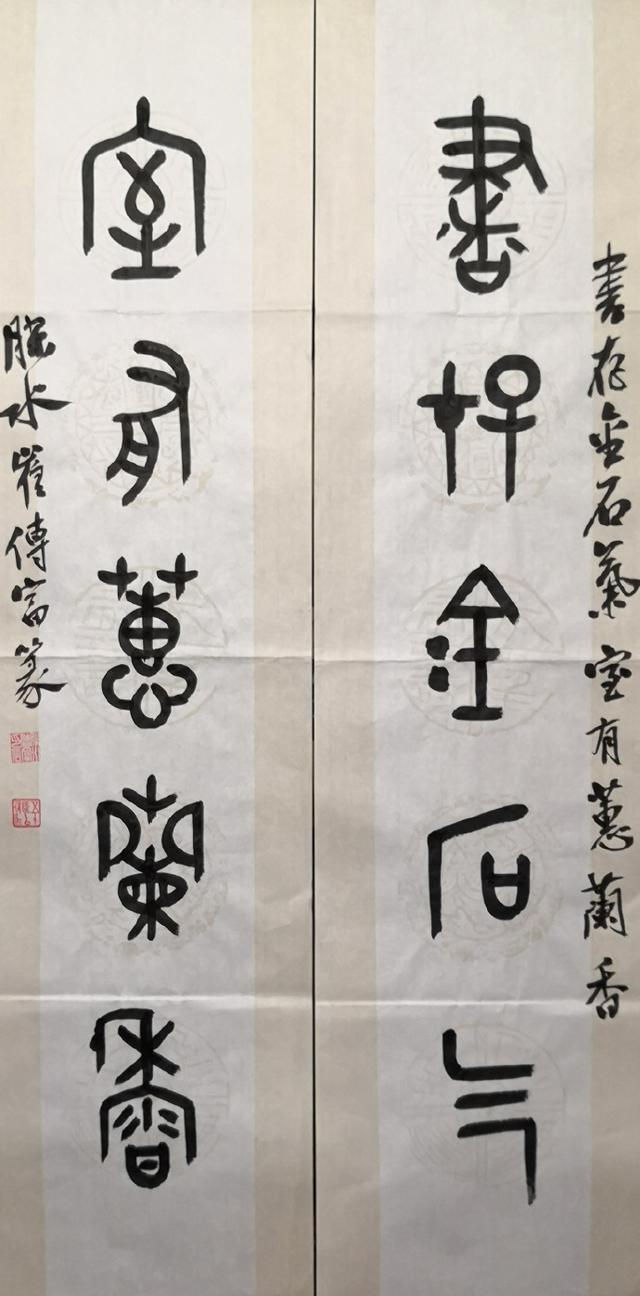 書存金石气
書存金石氣室有蕙蘭香
室有蕙蘭香
崔傳富篆